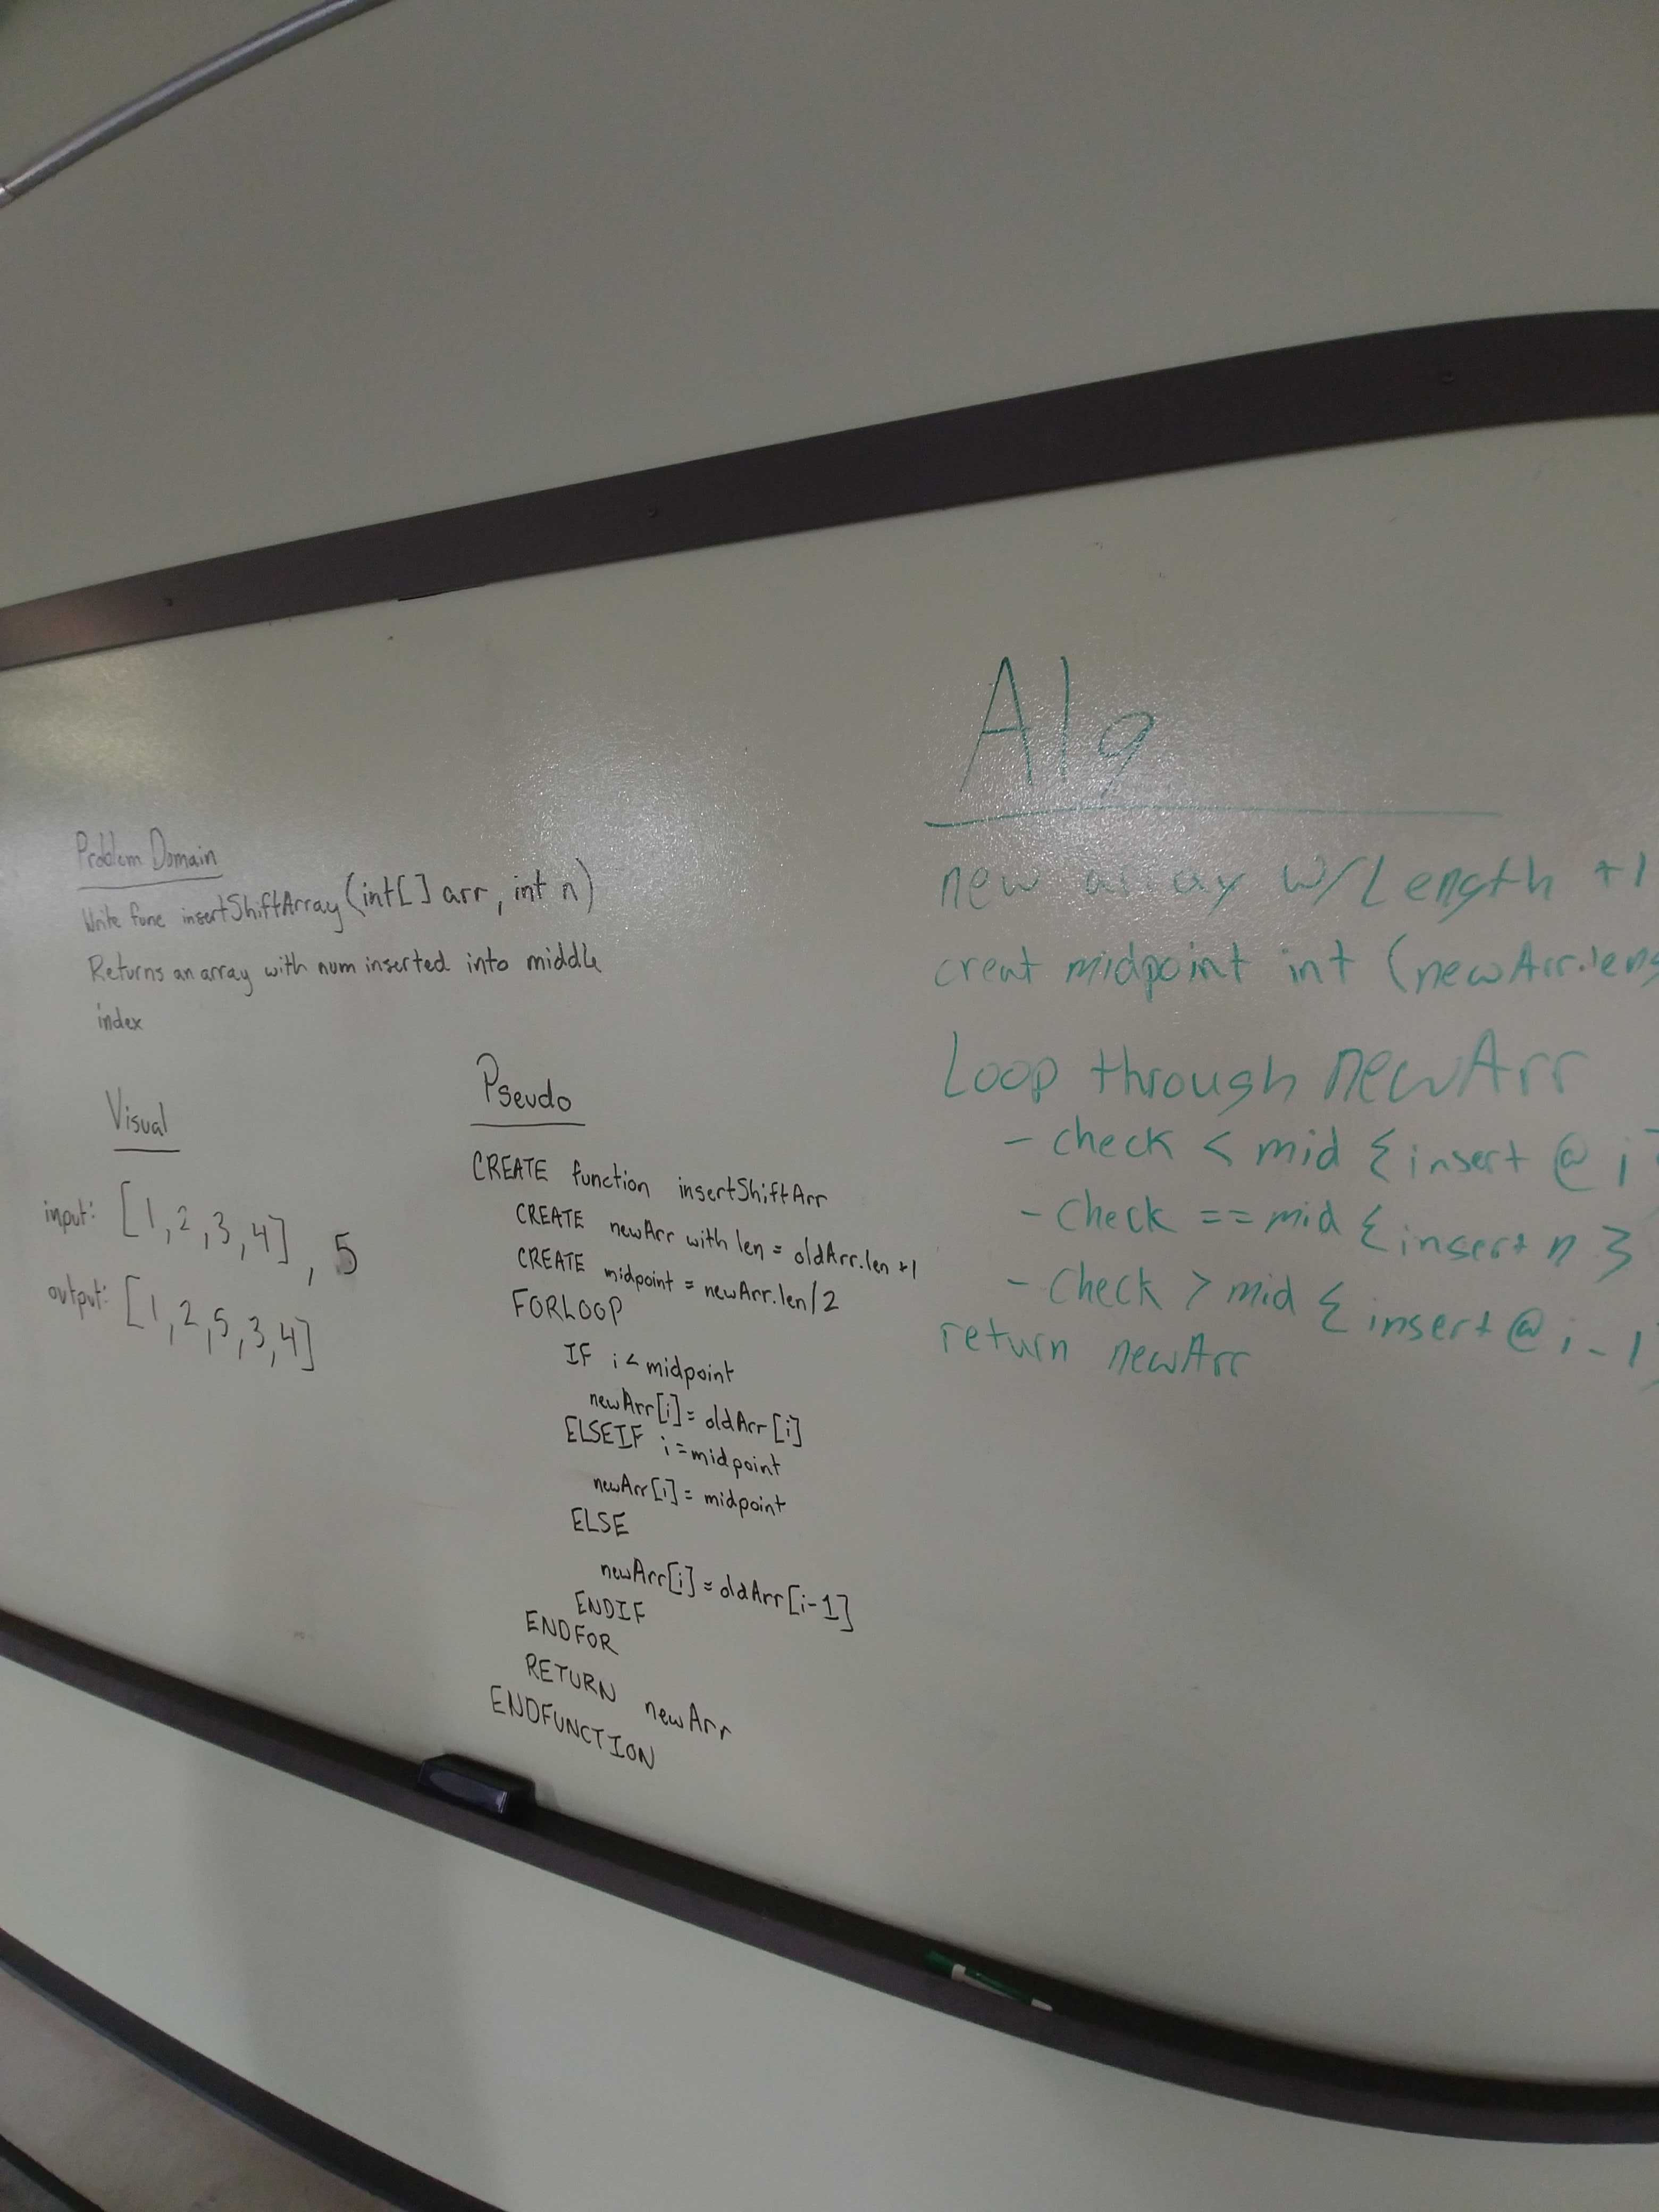 Problem Domain
Write func insertShiftArray (int[] arr, int n)
Returns an array with num inserted into middle
index
Visual
input: [1,2,3,4], 5
output: [1,2,5,3,4]
Pseudo
CREATE function insertShiftArr
CREATE newArr with len = oldArr.len +1
CREATE midpoint = newArr.len/2
FORLOOP
IF i < midpoint
newArr[i] = oldArr[i]
ELSEIF i = midpoint
newArr[i] = midpoint
ELSE
newArr[i] = oldArr[i-1]
ENDIF
ENDFOR
RETURN newArr
ENDFUNCTION
Alg
new array w/Length +1
creat midpoint int (newArr.leng
Loop through newArr
- check < mid {insert @ i}
- check == mid {insert n}
- check > mid {insert @ i-1}
return newArr